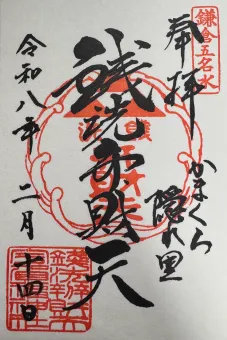 鎌倉五名水
奉拝
かまくら
隠れ里
銭洗弁財天
令和八年 二月
十四日